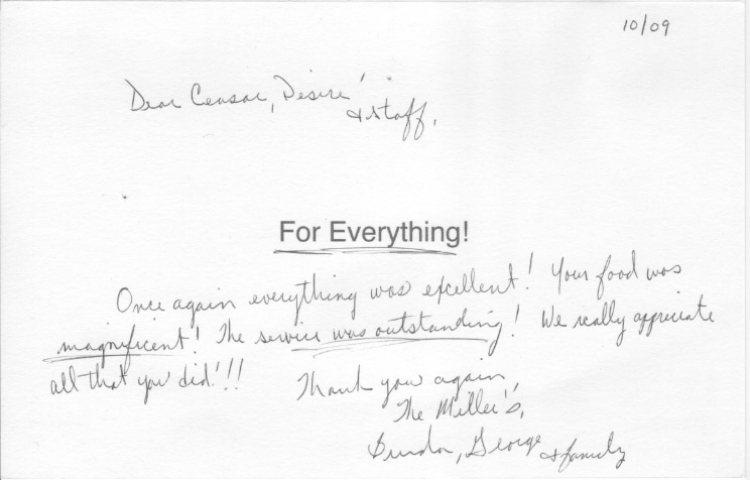 10/09
Dear Ceasar, Desire'
& staff,
For Everything!
Once again everything was excellent! Your food was
magnificent! The service was outstanding! We really appreciate
all that you did!!!
Thank you again,
The Miller's,
George & family